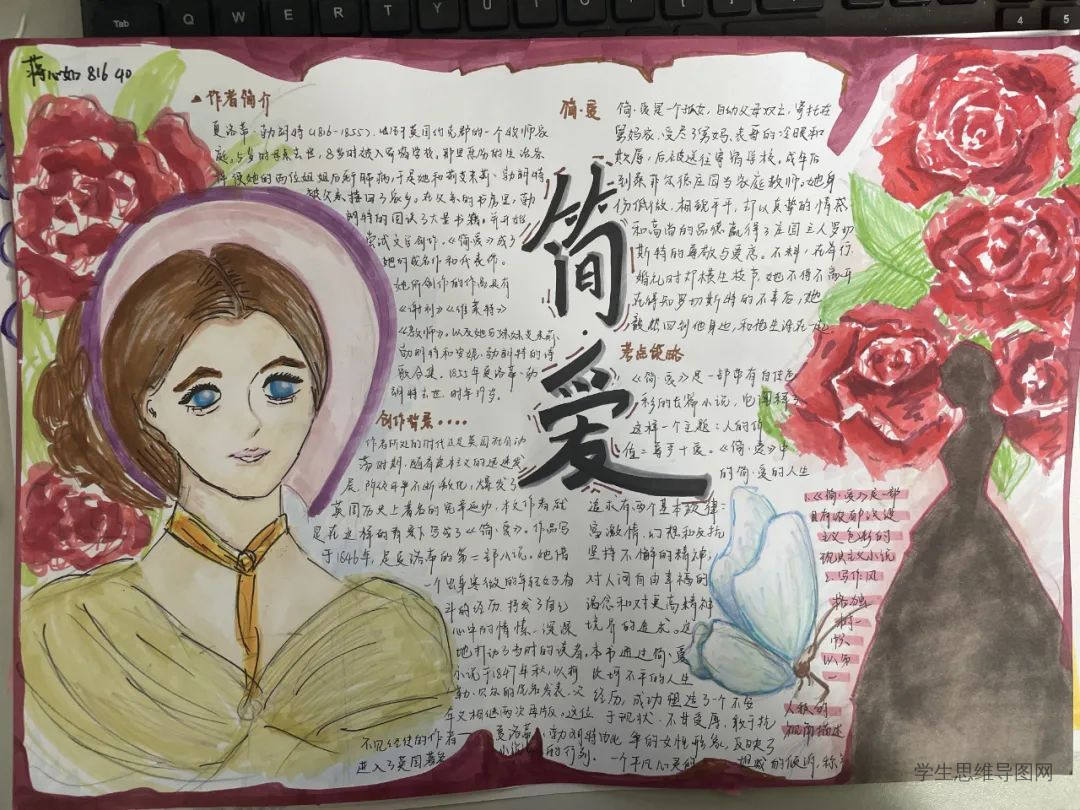 蒋心如 816 40
作者简介
夏洛蒂·勃朗特(1816-1855),出生于英国约克郡的一个牧师家
庭,5岁时母亲去世,8岁时被入寄宿学校,那里恶劣的生活条
件使她的两位姐姐患肺病,于是她和
被父亲接回了家乡,在父亲的书房里,勃
朗特的阅读了大量书籍,并开始
尝试文学创作。《简·爱》成了
她的成名作和代表作。
她所创作的作品还有
《谢利》《维莱特》
《教师》,以及她与妹妹艾米莉·
勃朗特和安妮·勃朗特的诗
歌合集。1855年夏洛蒂·勃
朗特去世,时年39岁。
创作背景....
作者所处的时代正是英国社会动
荡时期,随着资本主义的迅速发
展,阶级斗争不断激化,爆发了
英国历史上著名的宪章运动,本文作者就
是在这样的背景下写成了《简·爱》。作品写
于1846年,是夏洛蒂的第二部小说。她借
一个出身寒微的年轻女子奋
斗的经历,抒发了自己
心中的情愫,深深
地打动了当时的读者。
小说于1847年秋,以柯
勒·贝尔的化名发表,次
年又相继两次再版。这位
不见经传的作者——夏洛蒂·勃朗特由此
进入了英国著名小说家的行列。
简·爱
简·爱
简·爱是一个孤女,自幼父母双亡,寄托在
舅妈家,受尽了舅妈、表哥的冷眼和
欺辱,后被送往寄宿学校。成年后
到桑菲尔德庄园当家庭教师。她身
份低微,相貌平平,却以真挚的情感
和高尚的品德赢得了庄园主人罗切
斯特的尊敬与爱恋。不料,在举行
婚礼时却横生枝节,她不得不离开
在得知罗切斯特的不幸后,她
毅然回到他身边,和他生活在一起
考点攻略
《简·爱》是一部带有自传色
彩的长篇小说,它阐释了
这样一个主题:人的价
值=尊严+爱。《简·爱》中
的简·爱的人生
追求有两个基本旋律:
富激情、幻想和反抗
坚持不懈的精神;
对人间自由幸福的
渴念和对更高精神
境界的追求。这
本书通过简·爱
坎坷不平的人生
经历,成功塑造了一个不安
于现状、不甘受辱、敢于抗
争的女性形象,反映了
一个平凡心灵的
1.《简·爱》是一部
具有浓郁浪漫
主义色彩的
现实主义小说
2.写作风
格独
以第
一
人称的
视角描述
学生思维导图网